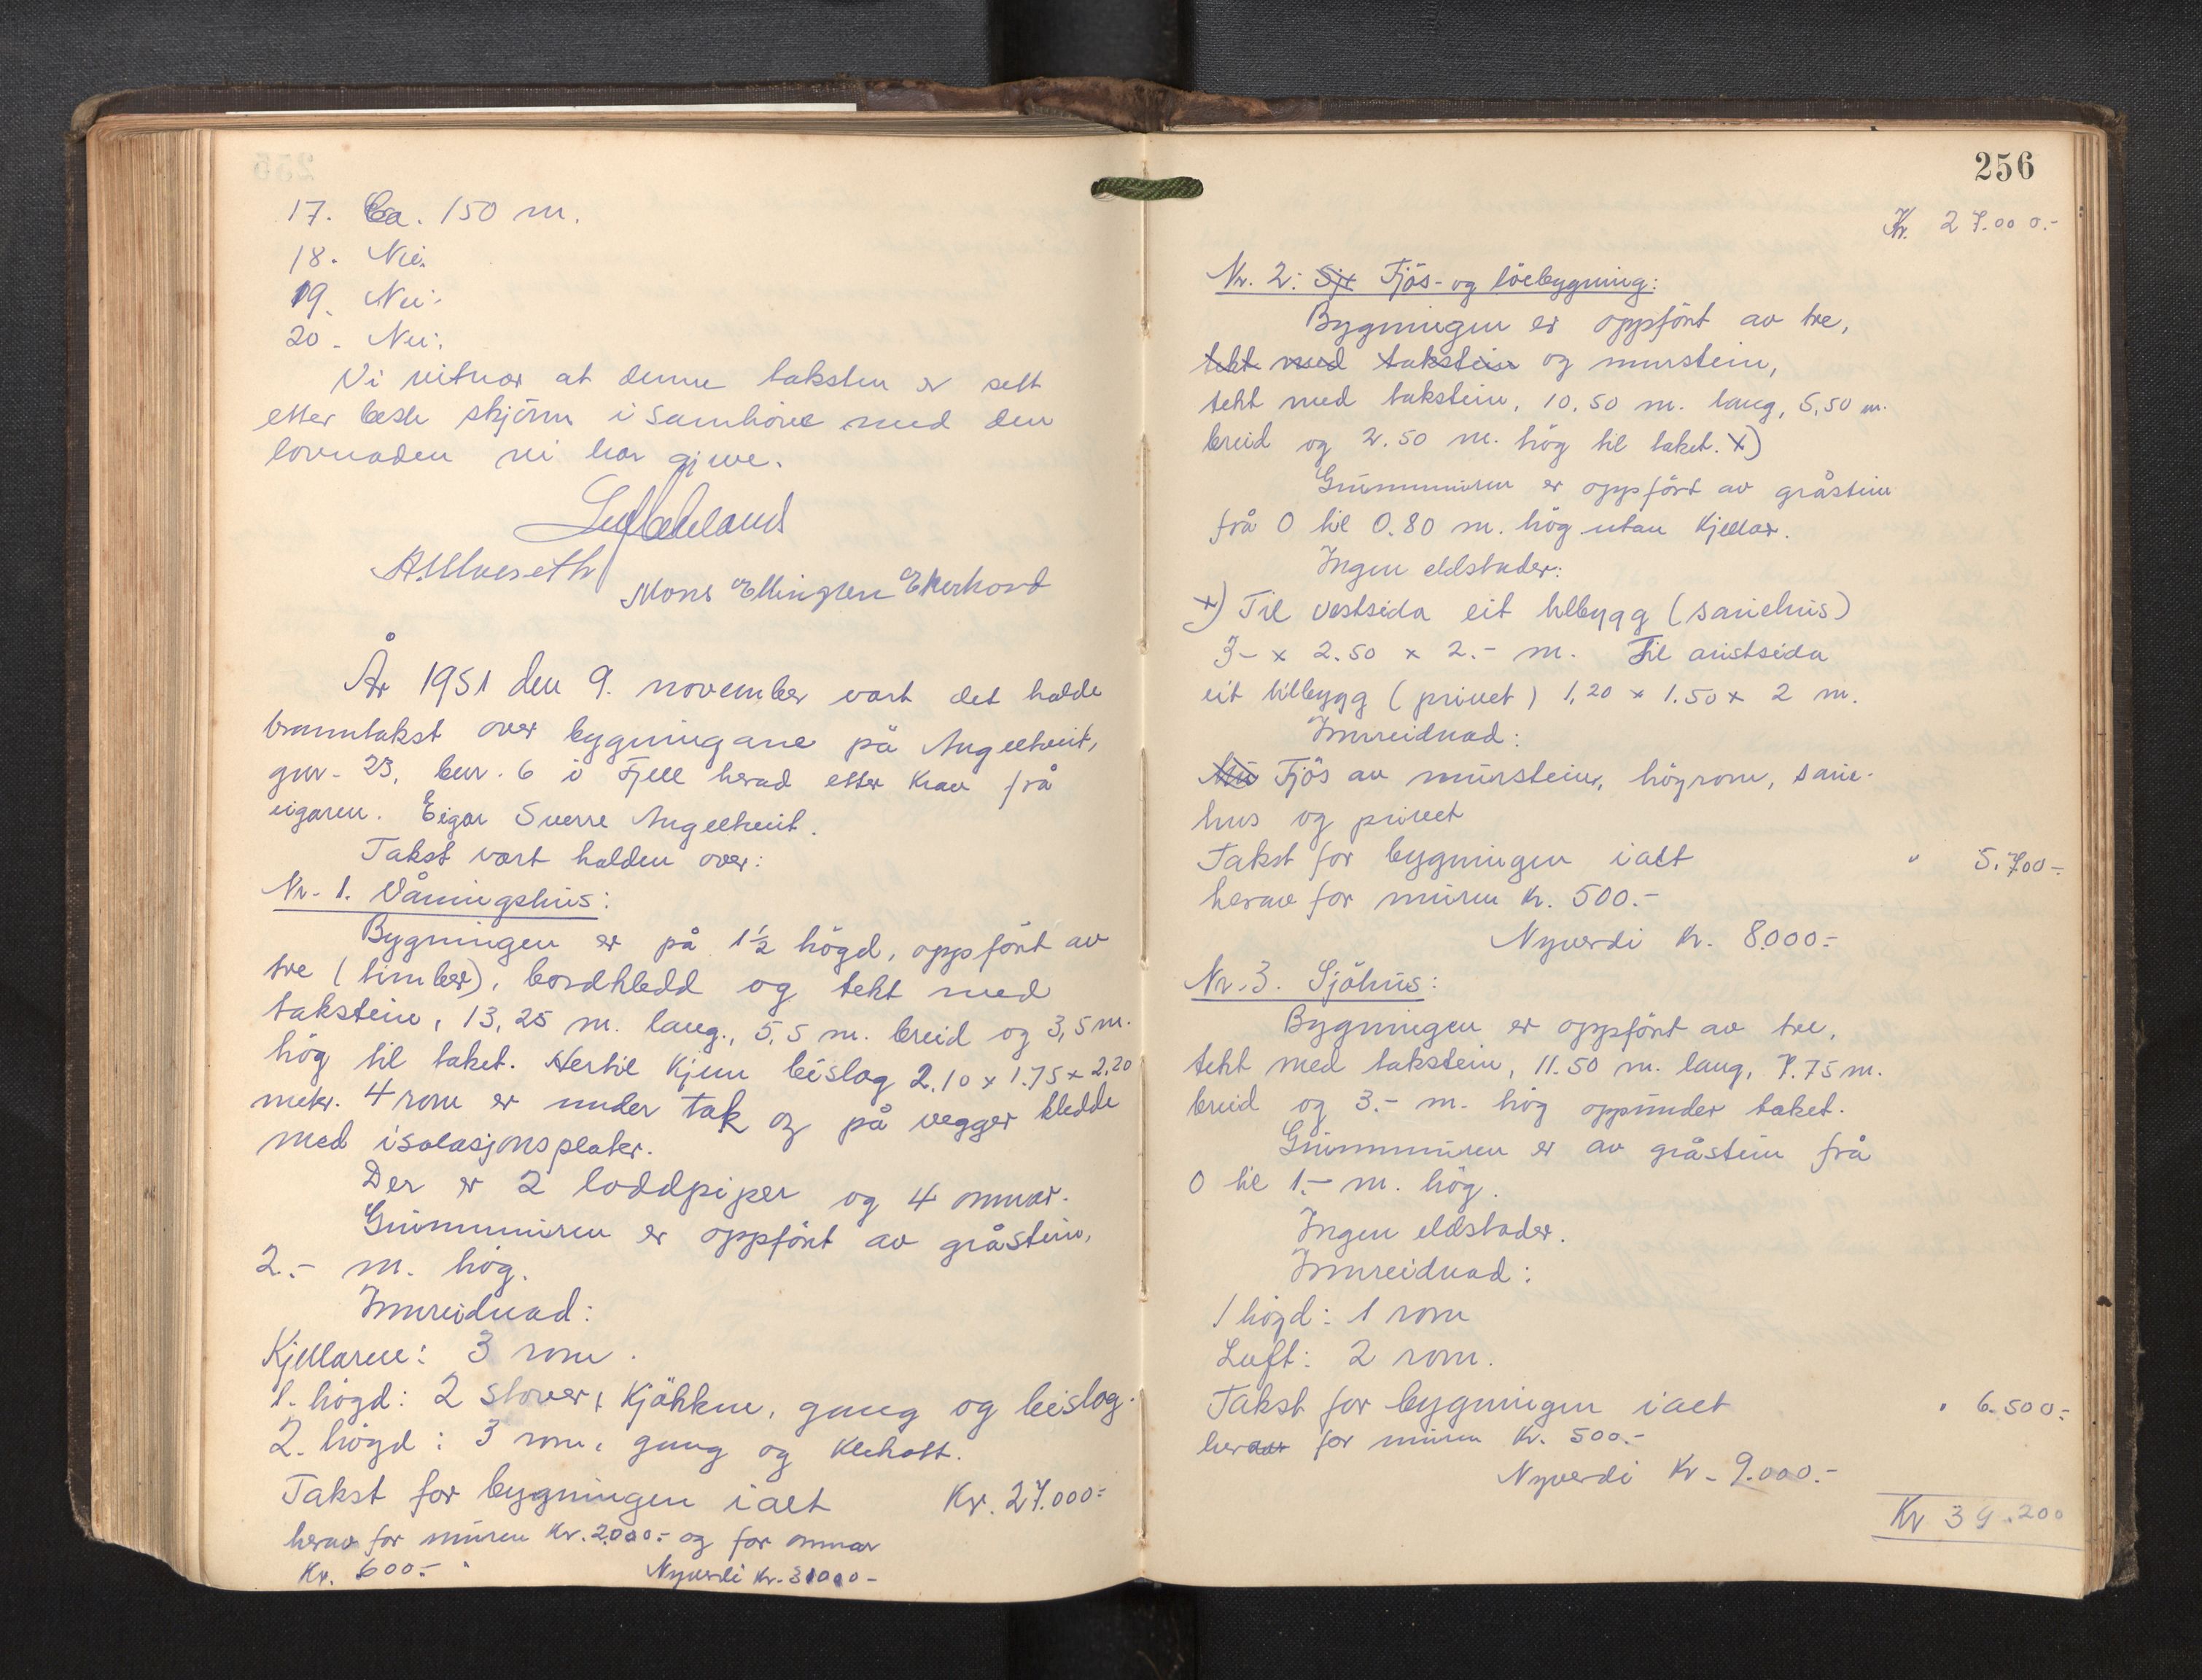 17. Ca. 150 m.
18. Nei.
19. Nei.
20. Nei.
Vi vitnar at denne taksten er sett
etter beste skjönn i samhöve med den
lovnaden vi har gjeve.
A. Ulveseth
Mons Ellingsen Ekerhovd
År 1951 den 9. november vart det halde
branntakst over bygningane på Angeltveit,
gnr. 23, bnr. 6 i Fjell herad etter krav frå
eigaren. Eigar Sverre Angeltveit.
Takst vart halden over:
Nr. 1. Våningshus:
Bygningen er på 1½ högd, oppfört av
tre (timber), bordkledd og tekt med
takstein, 13,25 m. lang., 5,5 m. breid og 3,5 m.
hög til taket. Hertil kjem beislag 2.10 x 1.75 x 2,20
meter. 4 rom er under tak og på vegger kledde
med isolasjonsplater.
Der er 2 loddpiper og 4 omnar.
Grunnmuren er oppfört av gråstein,
2.- m. hög.
Innreidnad:
Kjellaren: 3 rom.
1. högd: 2 stover, kjökken, gang og beislag.
2. högd: 3 rom, gang og klekott.
Takst for bygningen ialt Kr. 27.000.-
herav for muren Kr. 2000.- og for omnar
Kr. 600.- Nyverdi kr. 31000-
256
Kr. 27.000.-
Nr. 2: Sjø Fjös- og löebygning:
Bygningen er oppfört av tre,
tekt med takstein og murstein,
tekt med takstein, 10.50 m. lang, 5,50 m.
breid og 2.50 m. hög til taket. x)
Grunnmuren er oppfört av gråstein
frå 0 til 0.80 m. hög utan kjellar.
Ingen eldstader.
x) Til vestsida eit tilbygg (sauehus)
3- x 2.50 x 2.- m. Til austsida
eit tilbygg (privet) 1,20 x 1.50 x 2 m.
Innreidnad:
Fjös av murstein, högrom, saue-
hus og privet
Takst for bygningen ialt " 5.700.-
herav for muren kr. 500.-
Nyverdi kr. 8.000.-
Nr. 3. Sjöhus:
Bygningen er oppfört av tre,
tekt med takstein, 11.50 m. lang, 7.75 m.
breid og 3.- m. hög oppunder taket.
Grunnmuren er av gråstein frå
0 til 1.- m. hög.
Ingen eldstader.
Innreidnad:
1 högd: 1 rom
Luft: 2 rom.
Takst for bygningen ialt " 6.500.-
herav for muren kr. 500.-
Nyverdi Kr. 9.000.-
Kr 39.200